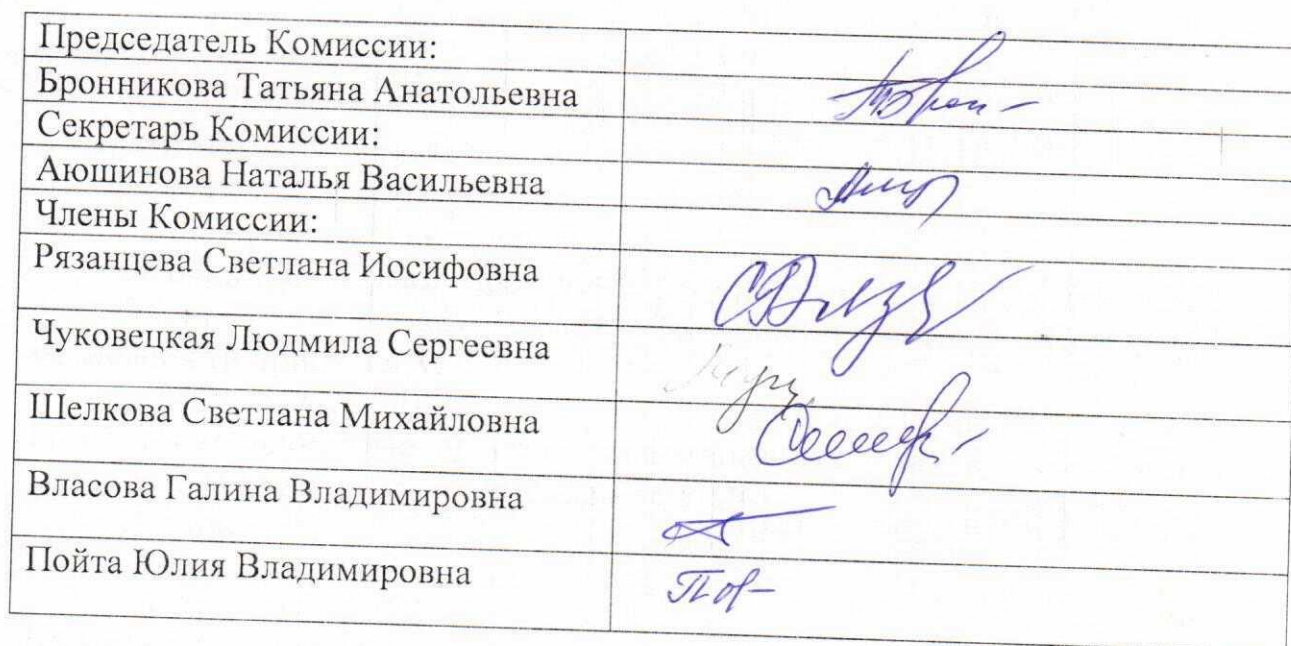 Председатель Комиссии:
Бронникова Татьяна Анатольевна
Секретарь Комиссии:
Аюшинова Наталья Васильевна
Члены Комиссии:
Рязанцева Светлана Иосифовна
Чуковецкая Людмила Сергеевна
Шелкова Светлана Михайловна
Власова Галина Владимировна
Пойта Юлия Владимировна